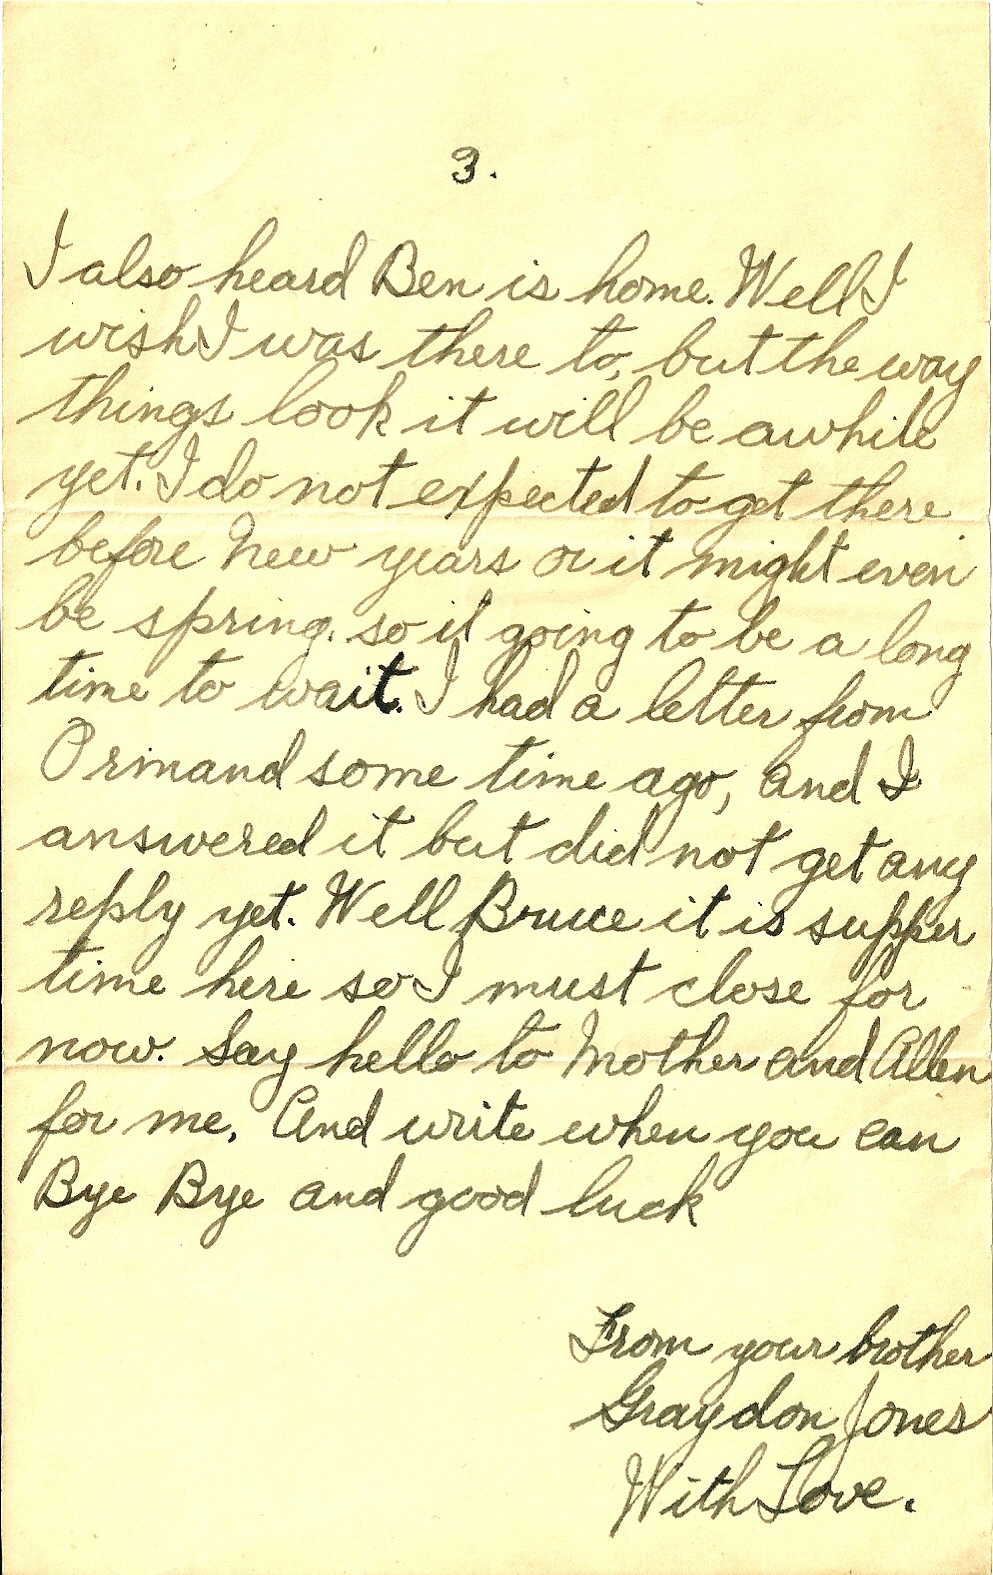 3.
I also heard Ben is home. Well I
wish I was there to, but the way
things look it will be awhile
yet. I do not expected to get there
before New years or it might even
be spring. so it going to be a long
time to wait. I had a letter from
Ormand some time ago, and I
answered it but did not get any
reply yet. Well Bruce it is supper
time here so I must close for
now. Say hello to Mother and Allen
for me. And write when you can
Bye Bye and good luck
From your brother
Graydon Jones
With Love.